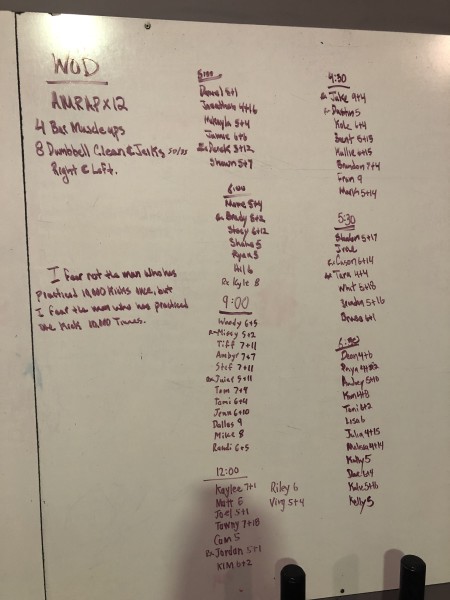 WOD
AMRAP x 12
4 Bar Muscle ups
8 Dumbbell Clean & Jerks 50/35
Right & Left.
I fear not the man who has
practiced 10,000 Kicks once, but
I fear the man who has practiced
one Kick 10,000 Times.
5:00
Daniel 5+1
Jonathan 4+16
Mikayla 5+4
Jamie 6+6
Rx Derek 3+12
Shawn 5+7
6:00
5+4
Rx Brady 6+2
Stacy 6+12
Shaha 5
Ryan 5
6
Rx Kyle 8
9:00
Woody 6+5
Rx Missy 5+2
Tiff 7+11
Ambyr 7+7
Stef 7+11
5+11
Tom 7+4
Tami 6+4
Jenn 6+10
Dallas 9
Mike 8
Randi 6+5
12:00
Kaylee 7+1
Matt 6
Joel 5+1
Tawny 7+18
Cam 5
Rx Jordan 5+1
Kim 6+2
Riley 6
Virg 5+4
4:30
Rx Jake 9+4
Dustin 5
Kole 6+4
Brent 5+13
Kallie 6+15
Brandon 7+4
Fran 9
Mark 5+14
5:30
5+17
Rx Cason 6+14
Rx Tara 4+4
5+18
5+16
6+1
Dean 4+6
Audrey 5+10
Kim 4+8
Toni 6+2
Lisa 6
Julia 4+15
Melissa 4+14
Kally 5
6+4
Kale 5+16
Kelly 5